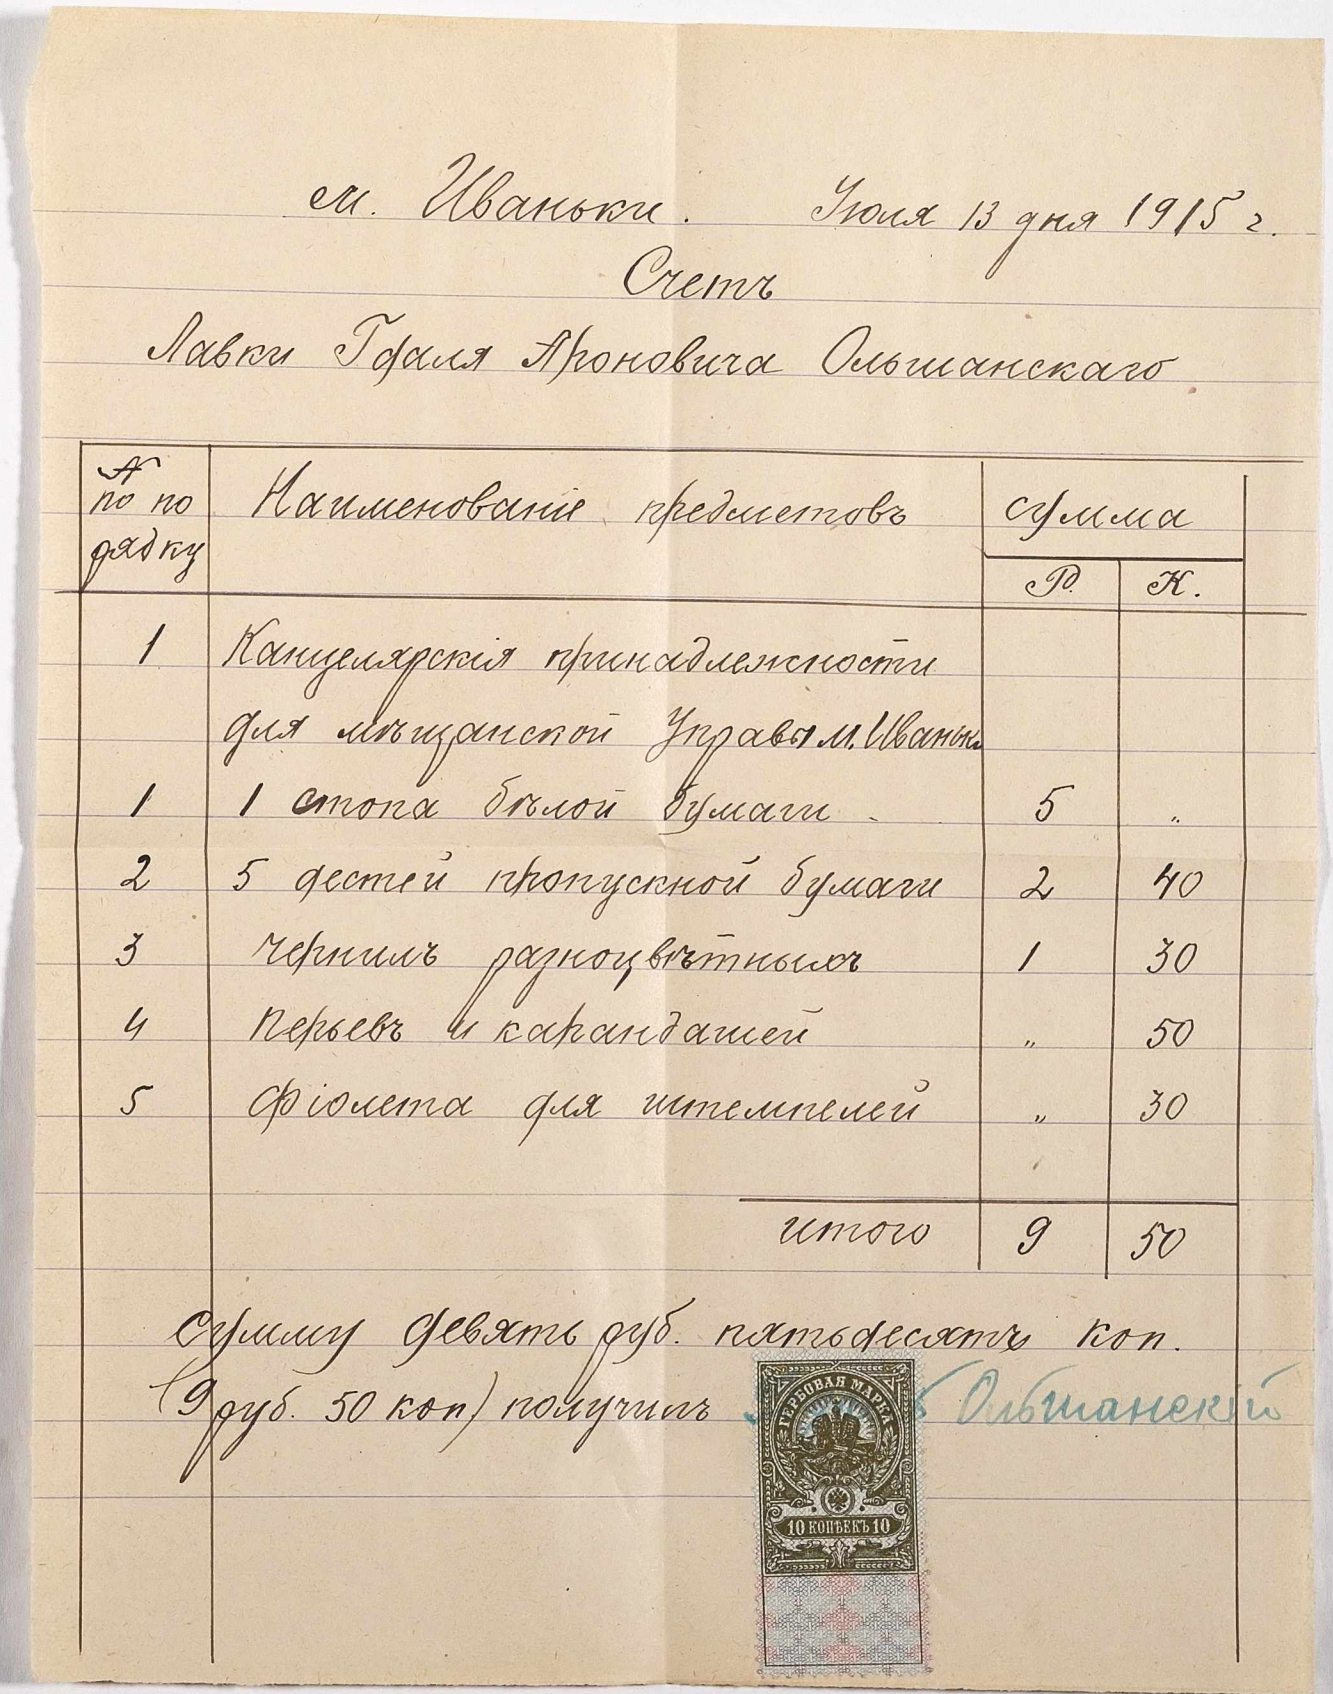 м. Иваньки. Іюля 13 дня 1915 г.
Счетъ
Лавки Гдаля Ароновича Ольшанскаго
№ по порядку
Наименованіе предметовъ
сумма
Р. К.
1 Канцелярскія принадлежности
для мѣщанской Управы м. Иваньки
1 1 стопа бѣлой бумаги . 5 "
2 5 дестей пропускной бумаги 2 40
3 чернилъ разноцвѣтныхъ 1 30
4 перьевъ и карандашей " 50
5 фіолета для штемпелей " 30
итого 9 50
сумму девять руб. пятьдесятъ коп.
(9 руб. 50 коп) получилъ Ольшанскій
ГЕРБОВАЯ МАРКА
10 КОПѢЕКЪ 10